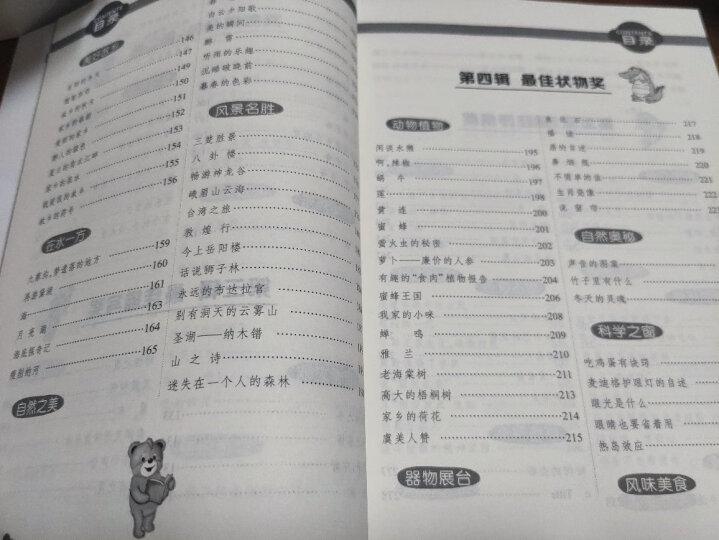 目录
146
147
149
150
151
152
153
154
155
156
在水一方
九寨沟,梦遗落的地方 159
160
海 161
月亮湖 163
海底探奇记 164
165
自然之美
白云乡阳歌
美的瞬间
醉雪
听雨的乐趣
沉睡破晓前
暮春的色彩
风景名胜
三楚胜景
八卦楼
畅游神龙谷
峨眉山云海
台湾之旅
敦煌行
今上岳阳楼
话说狮子林
永远的布达拉宫
别有洞天的云雾山
圣湖——纳木错
山之诗
迷失在一个人的森林
目录
第四辑 最佳状物奖
动物植物
闲谈水獭 195
啊,辣椒 196
蜗牛 197
莲 198
黄连 200
蜜蜂 201
萤火虫的秘密 202
萝卜——廉价的人参 203
有趣的“食肉”植物报告 204
蜜蜂王国 206
我家的小咪 208
蝉鸣 209
雅兰 210
老海棠树 211
高大的梧桐树 213
家乡的荷花 214
虞美人赞 215
器物展台
217
218
唐钩自述 219
鼻烟瓶 220
不简单的盐 221
生肖瓷像 222
说窗帘 22
自然奥秘
声音的图案
竹子里有什么
冬天的灵魂
科学之窗
吃鸡蛋有诀窍
麦迪格护眼灯的自述
眼光是什么
眼睛也要省着用
热岛效应
风味美食